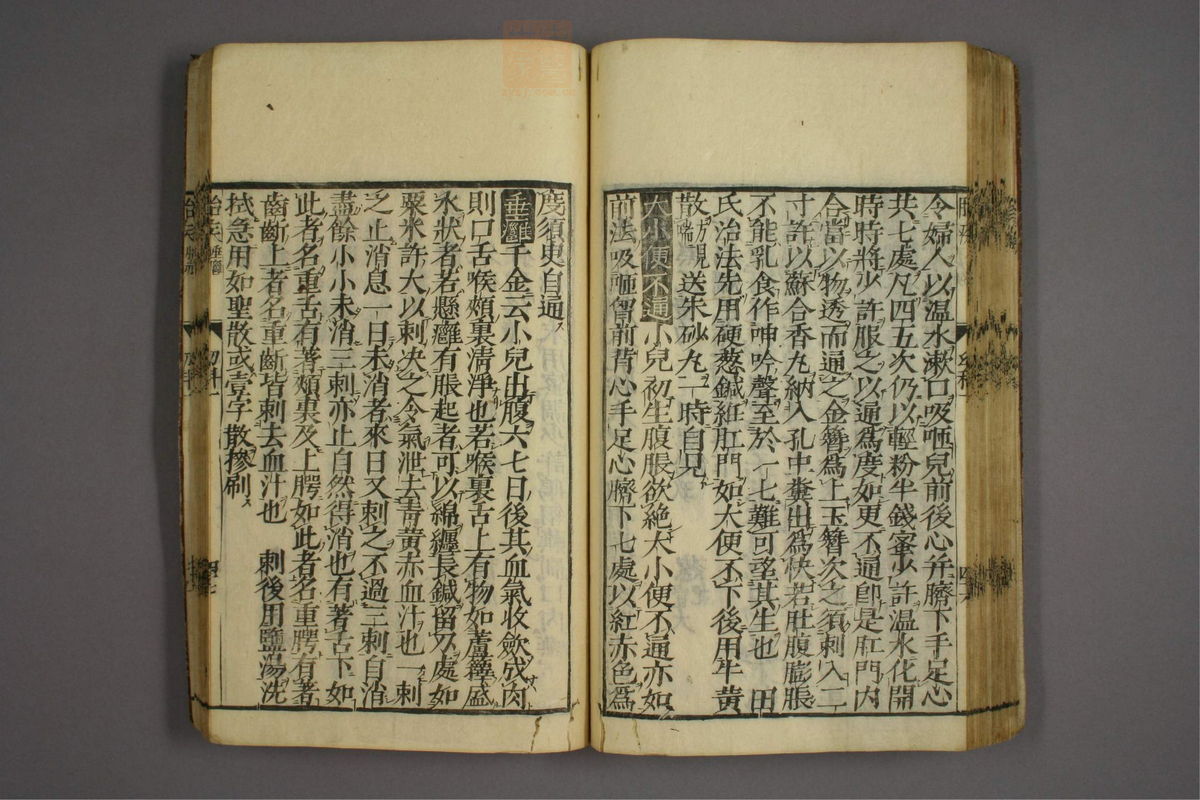 令婦人以温水漱口吸咂兒前後心并臍下手足心
共七處凡四五次仍以輕粉半錢蜜少許温水化開
時時將少許服之以通爲度如更不通即是肛門内
合當以物透而通之金簪爲上玉簪次之須刺入二
寸許以蘇合香丸納入孔中糞出爲快若肚腹膨脹
不能乳食作呻吟聲至於一七難可望其生也 田
氏治法先用硬葱鍼紝肛門如大便不下後用牛黄
散方見喘 送朱砂丸一時自見
大小便不通小兒初生腹脹欲絶大小便不通亦如
前法吸咂胷前背心手足心臍下七處以紅赤色爲
度須更自通
垂癰千金云小兒出腹六七日後其血氣收斂成肉
則口舌喉頰裏清淨也若喉裏舌上有物如蘆籜盛
水狀者若懸癰有脹起者可以綿纏長鍼留刃處如
粟米許大以刺决之令氣泄去青黄赤血汁也一刺
之止消息一日未消者來日又刺之不過三刺自消
盡餘小小未消三刺亦止自然得消也有著舌下如
此者名重舌有著頰裏及上腭如此者名重腭有著
齒齗上者名重齗皆刺去血汁也 刺後用鹽湯洗
拭急用如聖散或壹字散摻刷